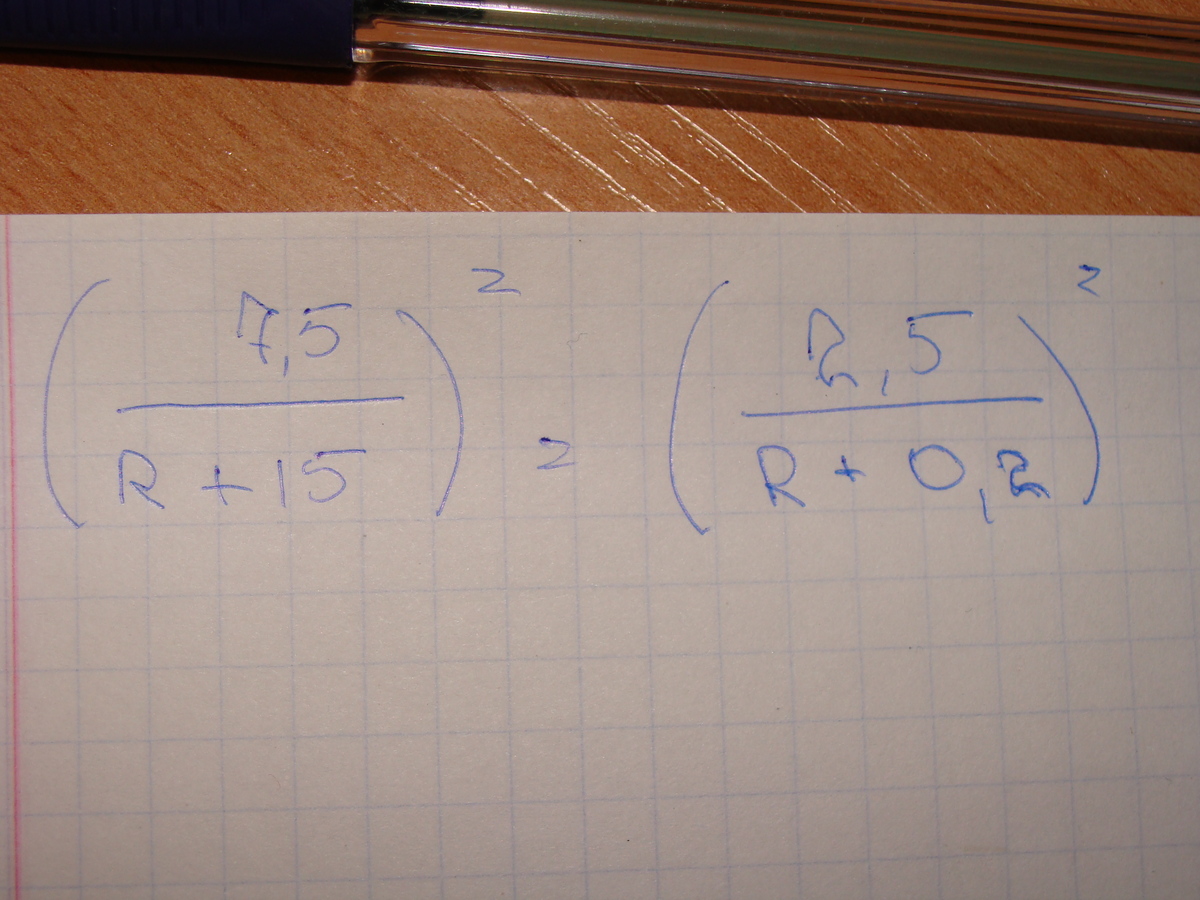 (7,5 / (R + 15))² = (2,5 / (R + 0,2))²